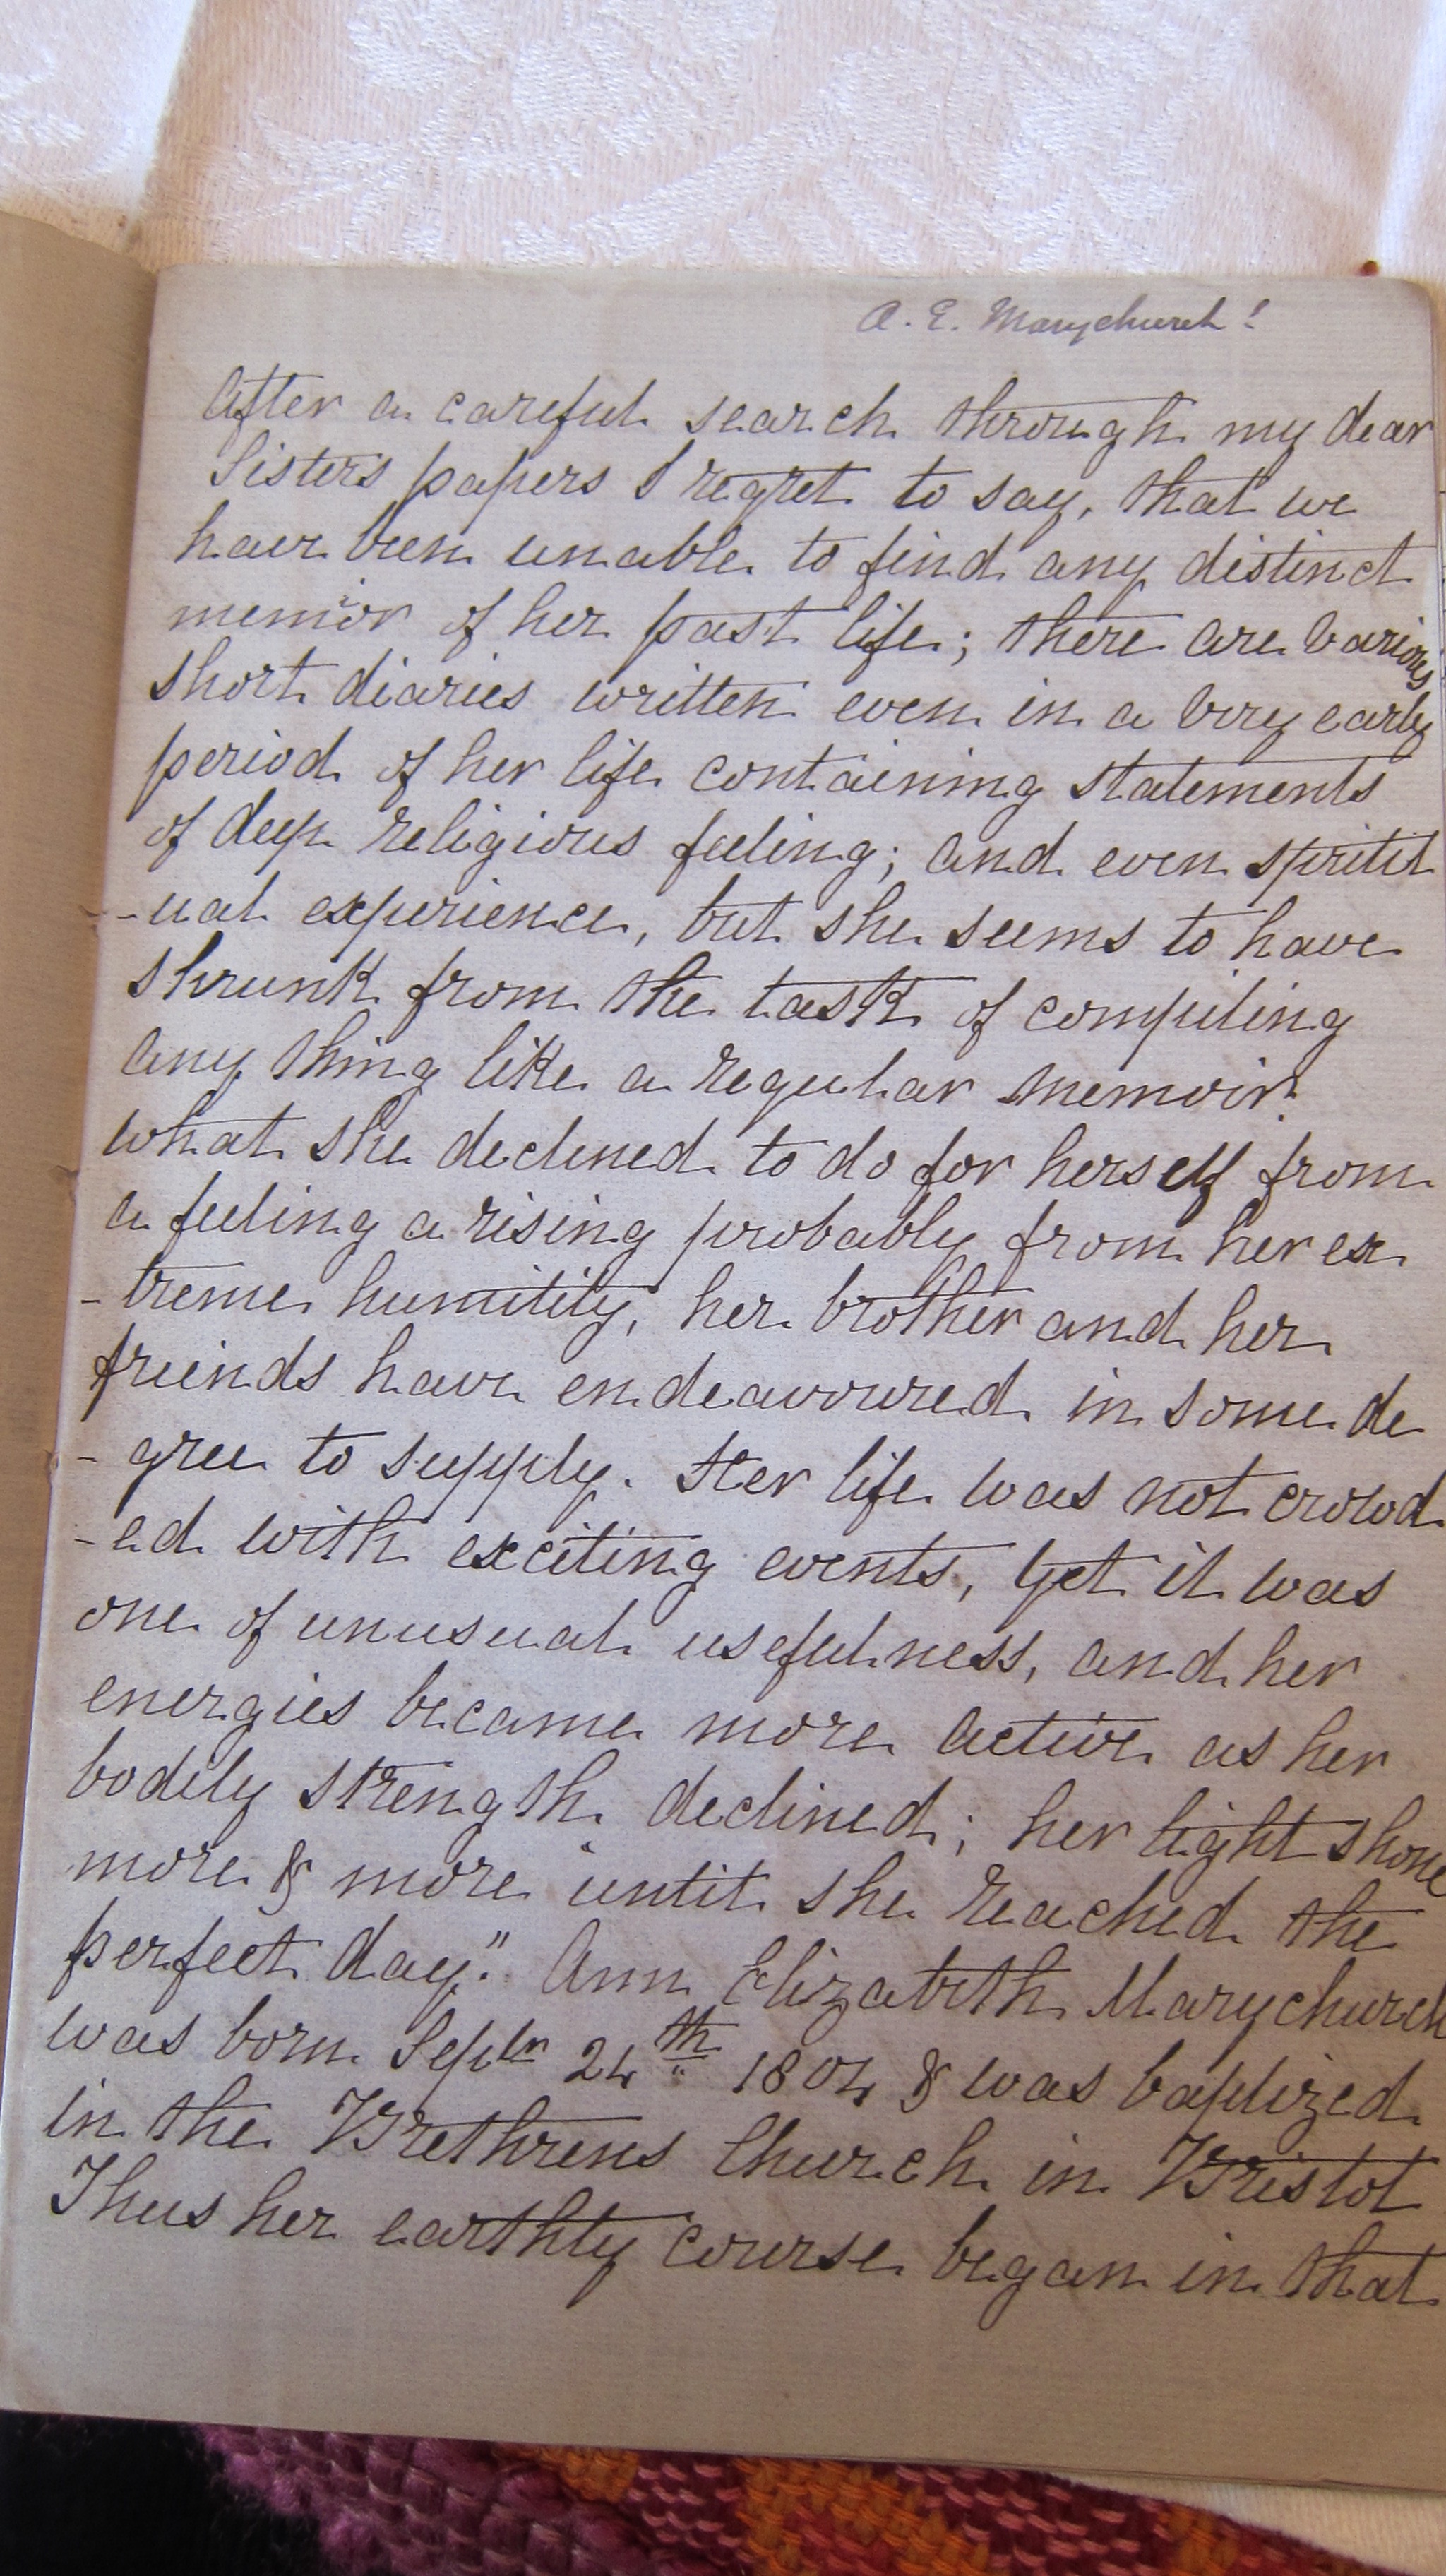 A. E. Marychurch!
After a careful search through my dear
Sisters papers I regret to say, that we
have been unable to find any distinct
memior of her past life; there are various
short diaries written even in a very early
period of her life containing statements
of deep religious feeling; and even spirit
-ual experience, but she seems to have
shrunk from the task of compiling
any thing like a regular memoir.
What she declined to do for herself from
a feeling arising probably from her ex
-treme humility, her brother and her
friends have endeavoured in some de
-gree to supply. Her life was not crowd
-ed with exciting events, yet it was
one of unusual usefulness, and her
energies became more active as her
bodily strength declined; her light shone
more & more until she reached the
perfect day." Ann Elizabeth Marychurch
was born Septr 24th 1804 & was baptized
in the Brethrens Church in Bristol
Thus her earthly course began in that